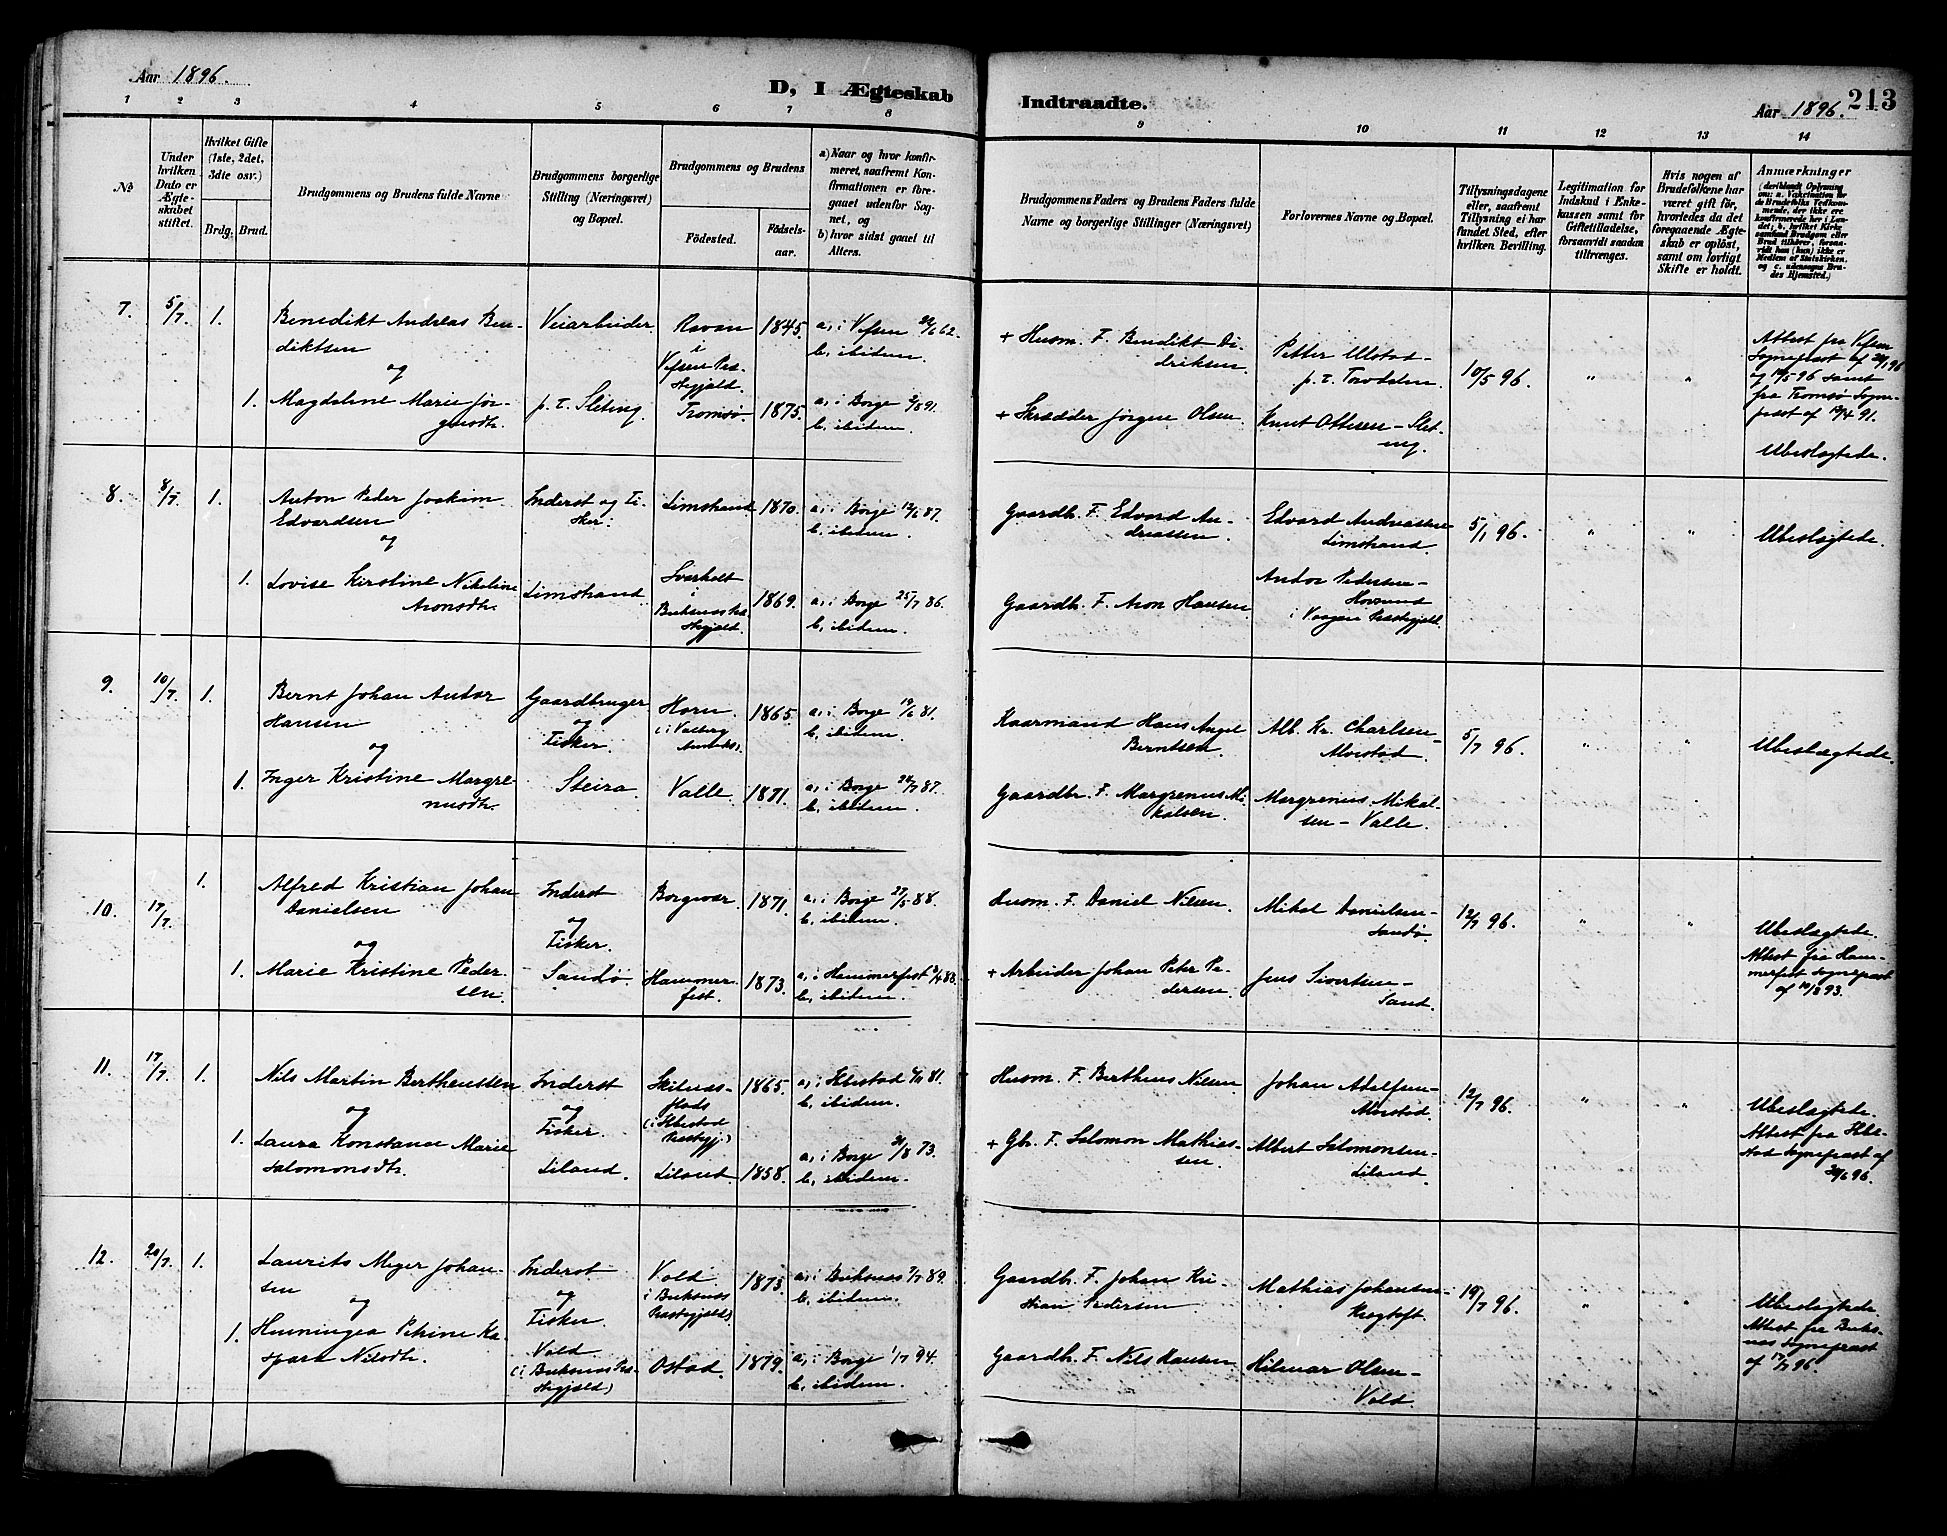 Aar 1896.
D, I Ægteskab
Indtraadte.
Aar 1896.
213
1 2 3 4 5 6 7 8 9 10 11 12 13 14
No
Under
hvilken
Dato er
Ægte-
skabet
stiftet.
Hvilket Gifte
(1ste, 2det,
3die osv.)
Brdg. Brud.
Brudgommens og Brudens fulde Navne
Brudgommens borgerlige
Stilling (Næringsvei)
og Bopæl.
Brudgommens og Brudens
Födested.
Födsels-
aar.
a) Naar og hvor konfir-
meret, saafremt Kon-
firmationen er fore-
gaaet udenfor Sog-
net, og
b) hvor sidst gaaet til
Alters.
Brudgommens Faders og Brudens Faders fulde
Navne og borgerlige Stillinger (Næringsvei)
Forlovernes Navne og Bopæl.
Tillysningsdagene
eller, saafremt
Tillysning ei har
fundet Sted, efter
hvilken Bevilling.
Legitimation for
Indskud i Enke-
kassen samt for
Giftetilladelse,
forsaavidt saadan
tiltrænges.
Hvis nogen af
Brudefolkene har
været gift för,
hvorledes da det
foregaaende Ægte-
skab er oplöst,
samt om lovligt
Skifte er holdt.
Anmærkninger
(deriblandt Oplysning
om: a. Vaccination for
de Brudefolks Vedkom-
mende, der ikke ere
konfirmerede her i Lan-
det; b. hvilket Kirke-
samfund Brudgom eller
Brud tilhörer, forsaa-
vidt han (hun) ikke er
Medlem af Statskirken,
og c. udensogns Bru-
des Hjemsted.)
7. 5/7. 1.
Benedikt Andreas Ben-
diktsen
og
1. Magdaline Marie Jør-
gensdtr.
Veiarbeider
p. t. Sleting.
Ravan
i
Vefsen Præ-
stegjeld.
Tromsø
1845.
1875.
a, i Vefsen 62.
b, ibidem.
a, i Borge 91.
b, ibidem.
+ Husm. F. Benedikt Di-
driksen
+ Skrædder Jørgen Olsen.
Petter Ulstad-
p. t. Torvdalen.
Knut Ottesen - Slet-
ing.
10/5 96.
" "
Attest fra Vefsen
Sogneprest af
og samt
fra Tromsø Sogne-
prest af 91.
Ubeslægtede.
8. 8/7. 1.
Anton Peder Joakim
Edvardsen
og
1. Lovise Kirstine Nikoline
Aronsdtr.
Inderst og Fi-
sker.
Limstrand.
Limstrand
Svarholt
i
Buksnæs Præ-
stegjeld.
1870.
1869.
a, i Borge 12/6 87.
b, ibidem.
a, i Borge 25/7 86.
b, ibidem.
Gaardb. F. Edvard An-
dreassen.
Gaardb. F. Aron Hansen
Edvard Andreassen-
Limstrand.
Andor Pedersen-
i Vaagan Præstegjeld.
5/1 96.
" "
Ubeslægtede.
9. 10/7. 1.
Bernt Johan Andor
Hansen
og
1. Inger Kristine Margre-
nusdtr.
Gaardbruger
og
Fisker.
Steira
Horn.
(i Valberg
Annex).
Valle.
1865.
1871.
a, i Borge 19/6 81.
b, ibidem.
a, i Borge 87.
b, ibidem.
Kaarmand Hans Angel
Berntsen.
Gaardbr. F. Margrenus Mi-
kalsen.
Alb. Kr. Charlsen-
Alvestad.
Margrenus Mikal-
sen - Valle.
5/7 96.
" "
Ubeslægtede.
10. 17/7. 1.
Alfred Kristian Johan
Danielsen
og
1. Marie Kristine Peder-
sen.
Inderst
og
Fisker.
Sandø.
Borgvær.
Hammer-
fest.
1871.
1873.
a, i Borge 27/5 88.
b, ibidem.
a, i Hammerfest 88.
b, ibidem.
Husm. F. Daniel Nilsen.
+ Arbeider Johan Peter Pe-
dersen.
Mikal Danielsen-
Sandø.
Jens Sivertsen-
Sand.
12/7 96.
" "
Ubeslægtede.
Attest fra Ham-
merfest Sogneprest
af 93.
11. 17/7. 1.
Nils Martin Bertheussen
og
1. Laura Konstance Marie
Salomonsdtr.
Inderst
og
Fisker.
Liland.
(i Ibbestad
Præstegj.)
Liland
1865.
1858.
a, i Ibbestad 81.
b, ibidem.
a, i Borge 73.
b, ibidem.
Husm. F. Bertheus Nilsen.
+ Gbr. F. Salomon Mathias-
sen.
Johan Adolfsen-
Alvestad.
Albert Salomonsen-
Liland.
12/7 96.
" "
Ubeslægtede.
Attest fra Ibbe-
stad Sogneprest af
96.
12. 20/7. 1.
Laurits Meyer Johan-
sen
og
1. Henningea Petrine Ka-
spara Nilsdtr.
Inderst
og
Fisker.
Vold
(i Buksnæs Præ-
stegjeld)
Vold.
i Buksnæs
Præstegjeld)
Ostad.
1873.
1879.
a, i Buksnæs 89.
b, ibidem.
a, i Borge 1/7 94.
b, ibidem.
Gaardb. F. Johan Kri-
stian Pedersen
Gaardb. F. Nils Hansen
Mathias Johansen-
Krogtoft.
Hilmar Olsen-
Vold.
19/7 96.
" "
Ubeslægtede
Attest fra Buks-
næs Sogneprest
af 17/7 96.